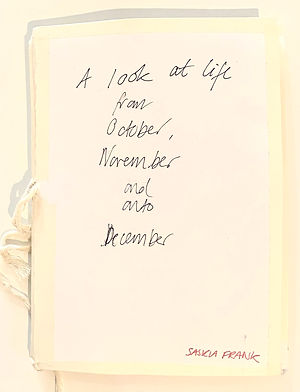 A look at life
from
October,
November
and
onto
December
SASKIA FRANK